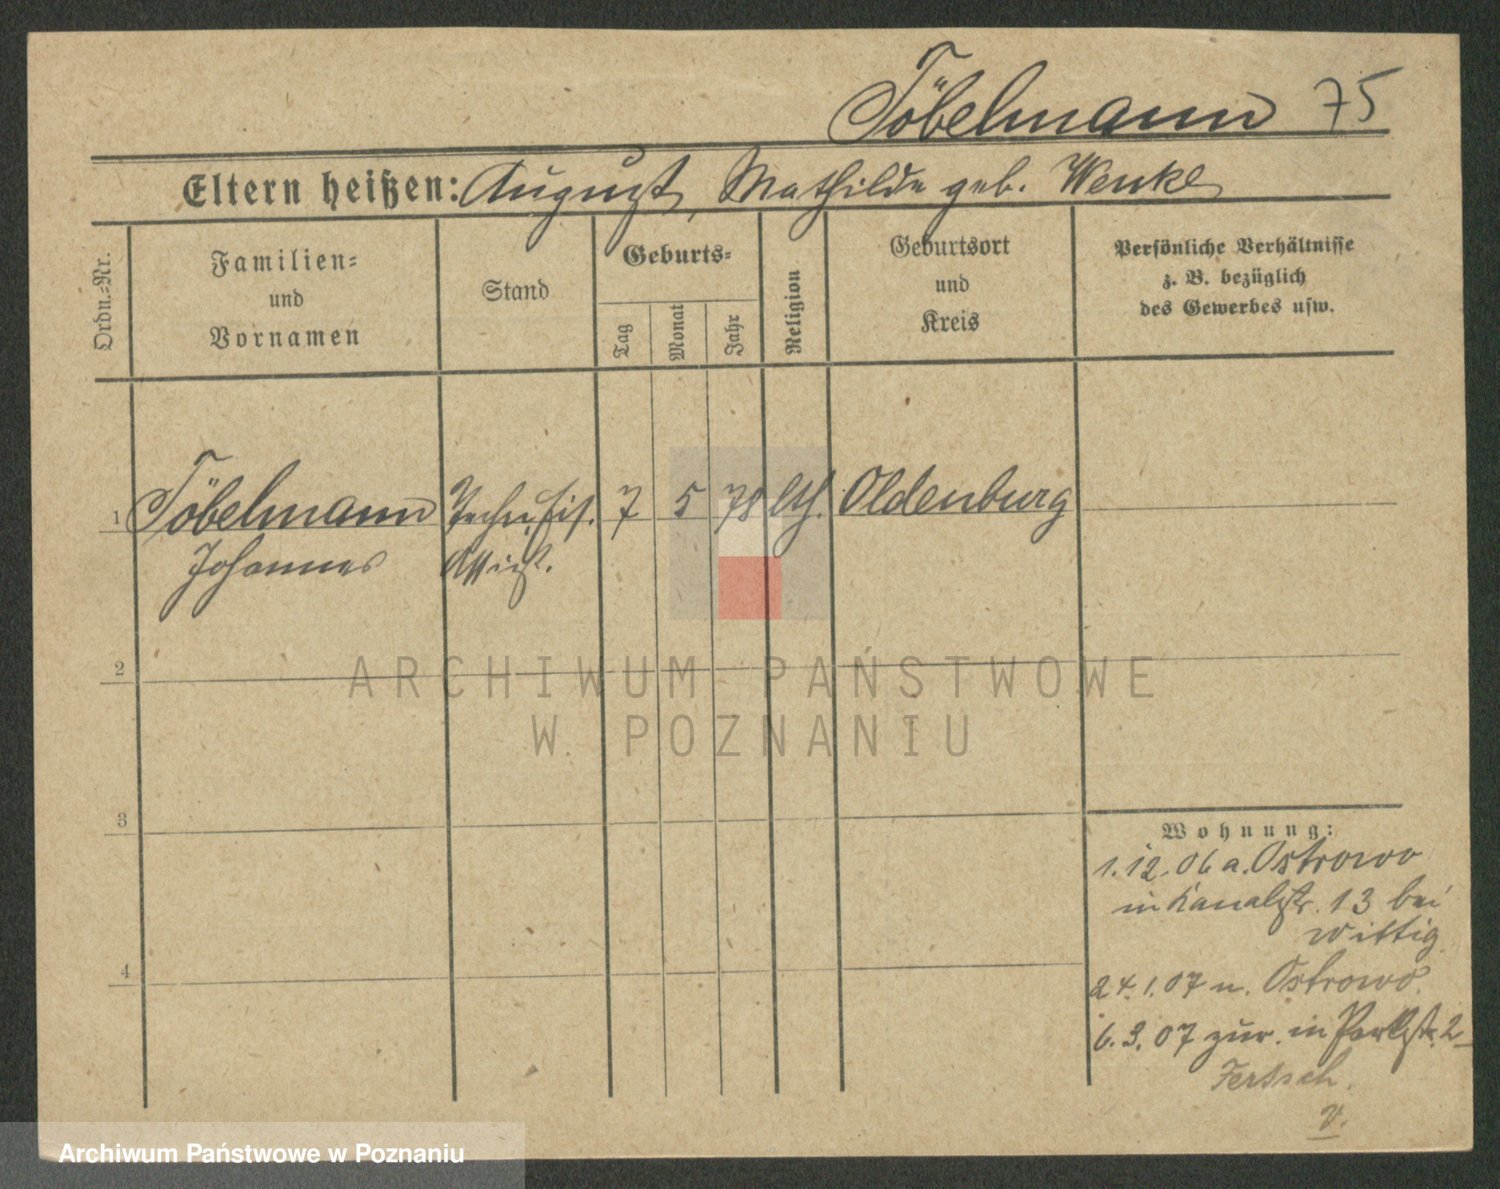 Töbelmann 75
Eltern heißen: August, Mathilde geb. Wenke
Ordn.-Nr.
Familien-
und
Vornamen
Stand
Geburts-
Tag
Monat
Jahr
Religion
Geburtsort
und
Kreis
Persönliche Verhältnisse
z. B. bezüglich
des Gewerbes usw.
1 Töbelmann 7 5 78 lth. Oldenburg
Johannes Assist.
2
ARCHIWUM PAŃSTWOWE
W POZNANIU
3
Wohnung:
1.12.06 a. Ostrowo
in Kanalstr. 13 bei
Wittig
4
24.1.07 n. Ostrowo.
6.3.07 zur. in Parkstr. 2
Fertsch.
v.
Archiwum Państwowe w Poznaniu